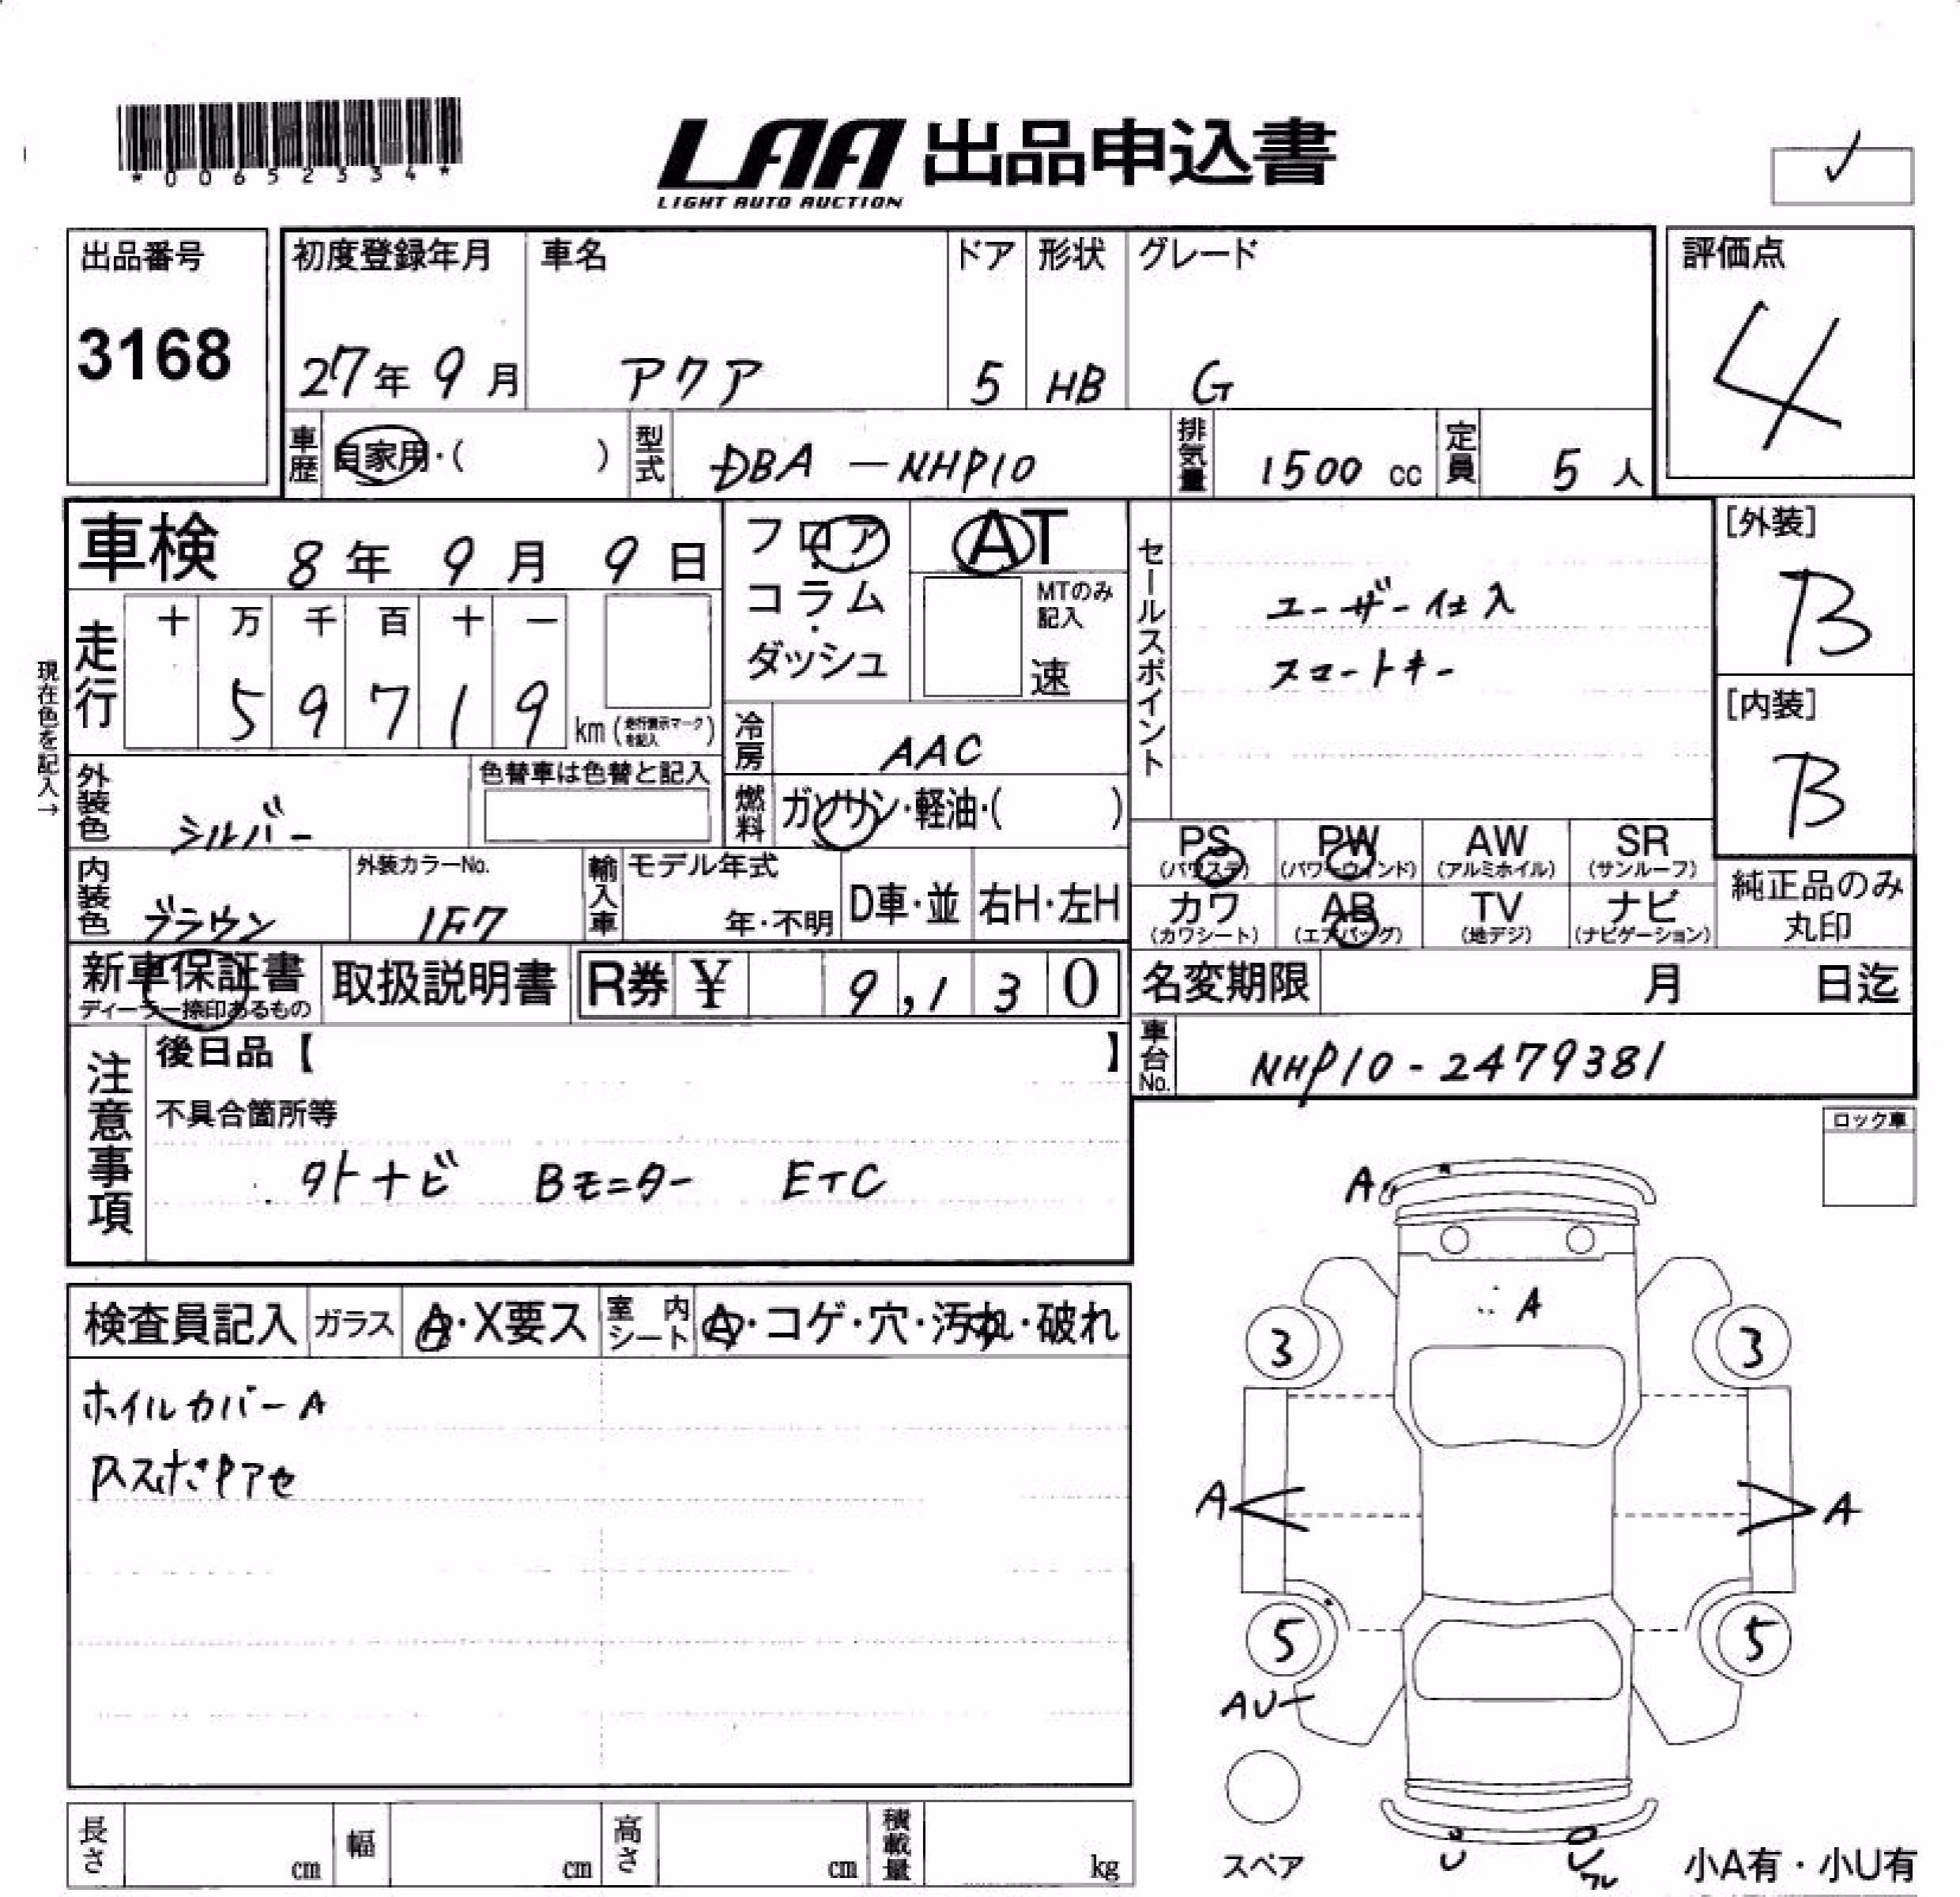 *00652334*
LAA 出品申込書
LIGHT AUTO AUCTION
出品番号
3168
初度登録年月 車名 ドア 形状 グレード
27年 9月 アクア 5 HB G
評価点
4
車歴 自家用・( ) 型式 DBA-NHP10 排気量 1500 cc 定員 5人
車検 8年 9月 9日
フロア・コラム・ダッシュ
AT
MTのみ記入
速
セールスポイント
ユーザー仕入
スマートキー
[外装]
B
[内装]
B
現在色を記入→
走行 十 万 千 百 十 一
59719 km (走行表示マークを記入)
冷房 AAC
外装色 シルバー
色替車は色替と記入
燃料 ガソリン・軽油・( )
PS (パワステ) PW (パワーウィンド) AW (アルミホイル) SR (サンルーフ)
カワ (カワシート) AB (エアバッグ) TV (地デジ) ナビ (ナビゲーション)
純正品のみ丸印
内装色 ブラウン
外装カラーNo.
1F7
輸入車 モデル年式
年・不明
D車・並 右H・左H
新車保証書
ディーラー捺印あるもの
取扱説明書
R券 ¥ 9,130
名変期限 月 日迄
車台No. NHP10-2479381
注意事項
後日品【 】
不具合箇所等
外ナビ Bモニター ETC
ロック車
検査員記入 ガラス A・X要ス 室内シート A・コゲ・穴・汚れ・破れ
ホイルカバーA
A
A
3 3
A A
5 5
AU
スペア
U
U
小A有・小U有
長さ cm 幅 cm 高さ cm 積載量 kg